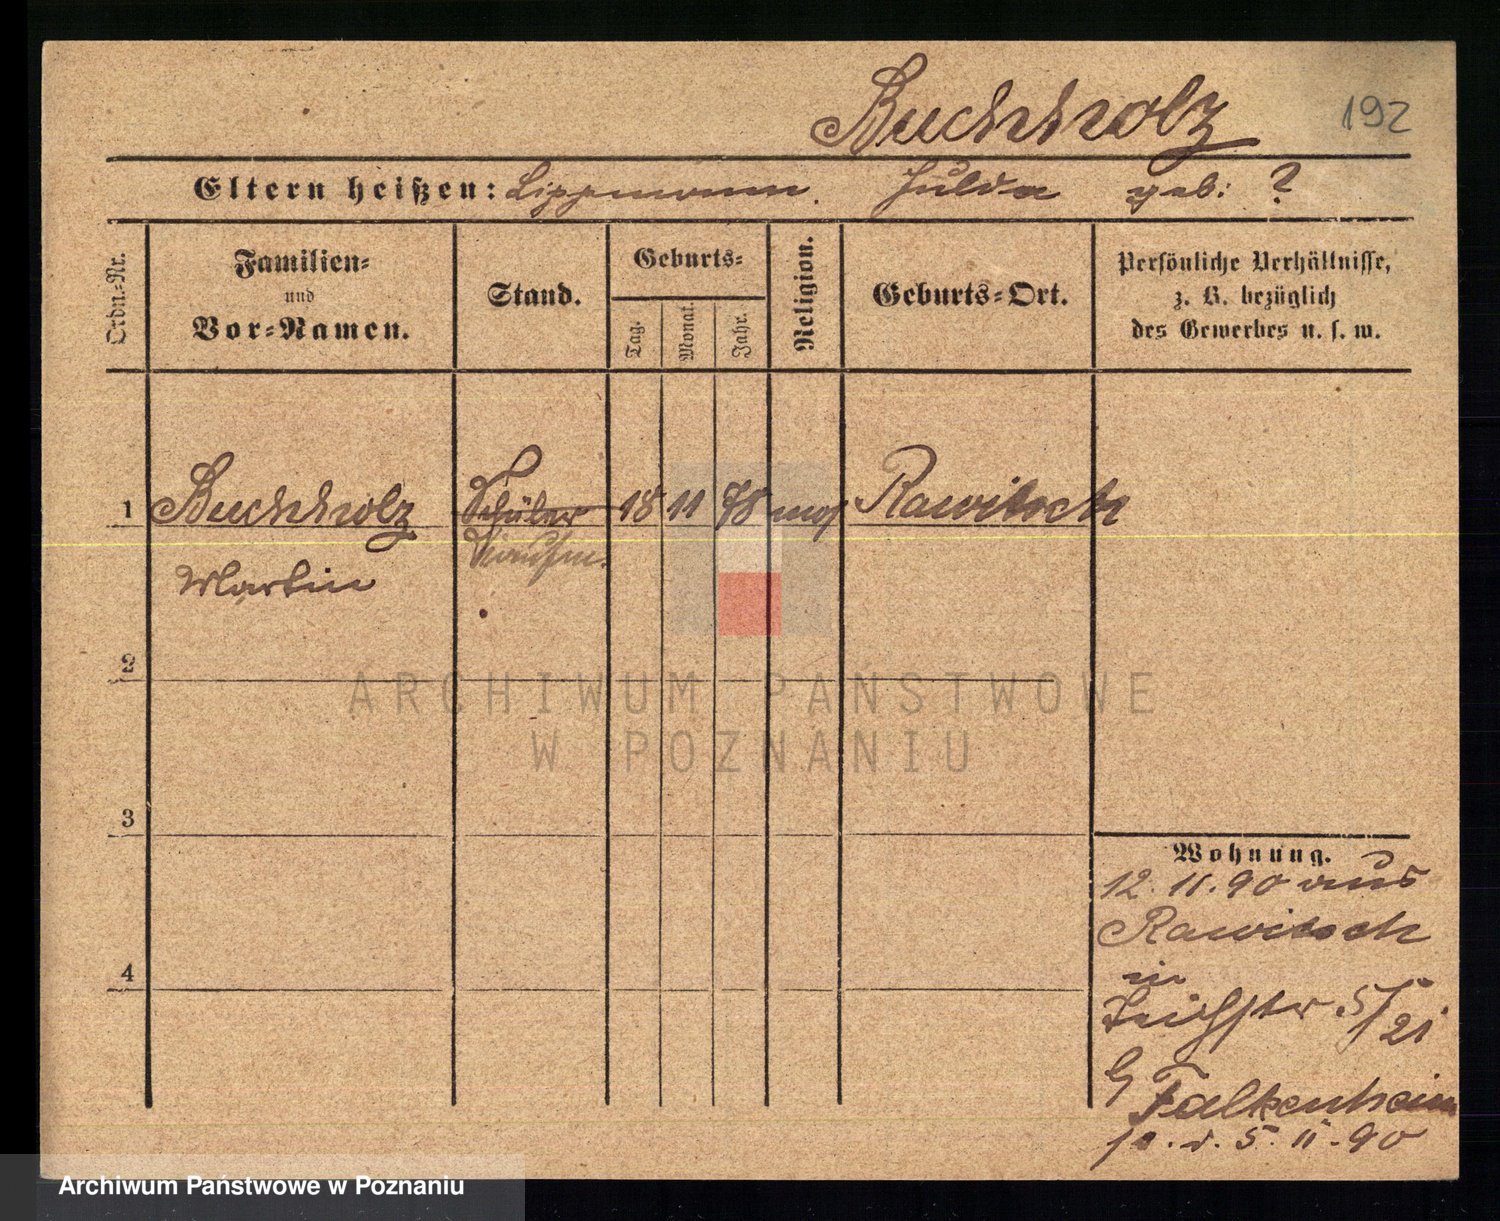 Buchholz
192
Eltern heißen: Lippmann. Hulda geb: ?
Ordn.-Nr.
Familien-
und
Vor-Namen.
Stand.
Geburts-
Tag.
Monat.
Jahr.
Religion.
Geburts-Ort.
Persönliche Verhältnisse,
z. B. bezüglich
des Gewerbes u. s. w.
1 Buchholz Schüler 18 11 78 mos Rawitsch
Kaufm.
Martin
2
3
4
Wohnung.
12. 11. 90 aus
Rawitsch
in
5/21
Falkenheim
v. 5. 11. 90
ARCHIWUM PAŃSTWOWE
W POZNANIU
Archiwum Państwowe w Poznaniu